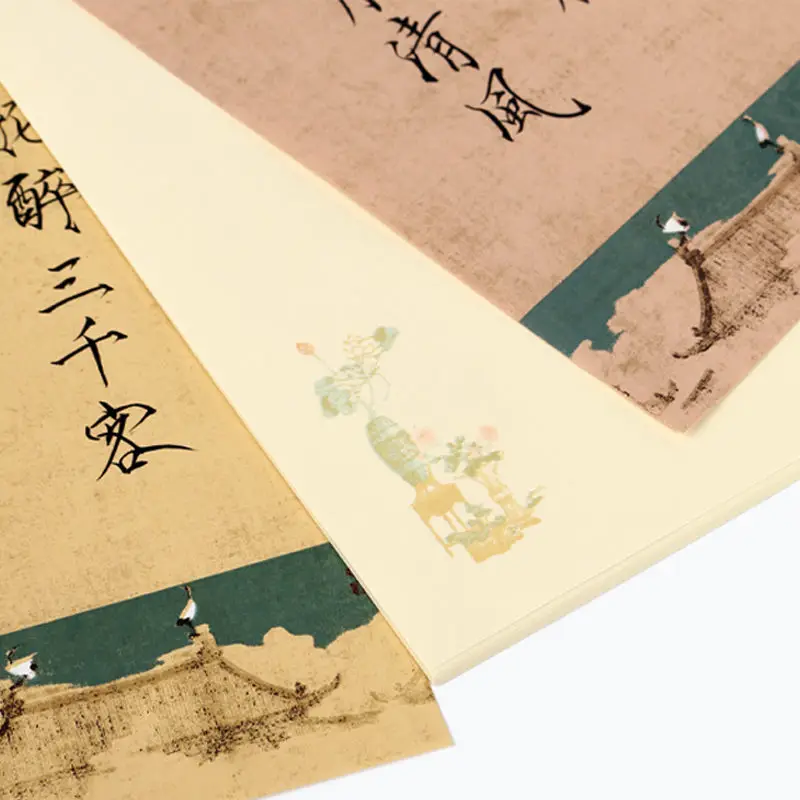 花醉三千客
清風